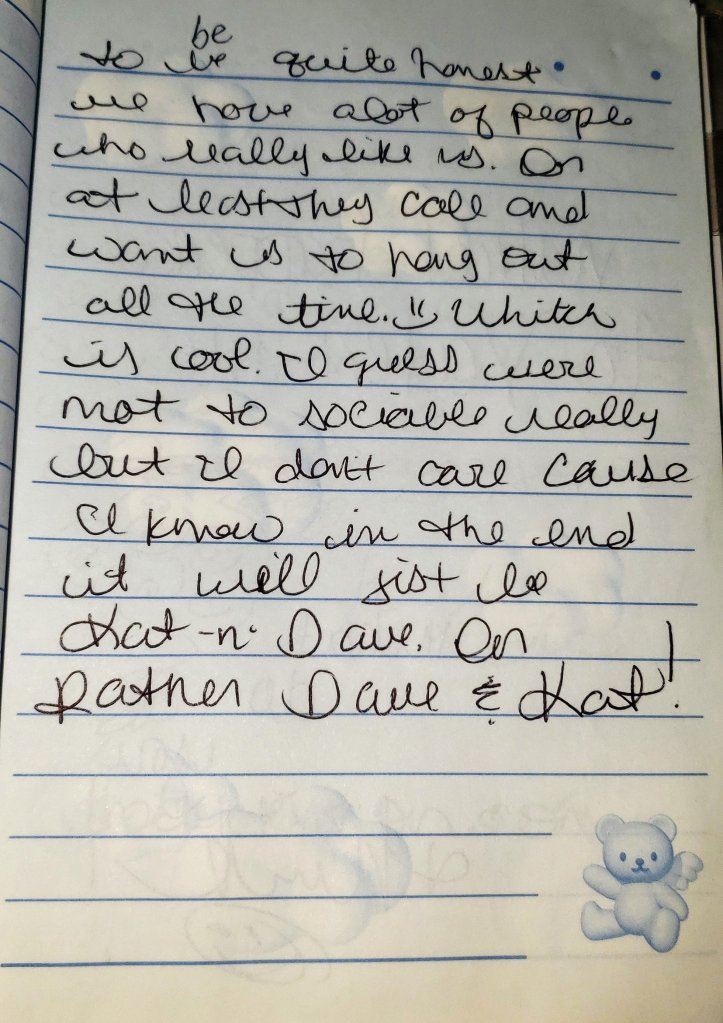 to be be quite honest.
we have alot of people
who really like us. Or
at least they call and
want us to hang out
all the time. =) Whitch
is cool. I guess were
not to sociable really
but I don't care cause
I know in the end
it will jist be
Kat-n-Dave. Or
Rather Dave & Kat!